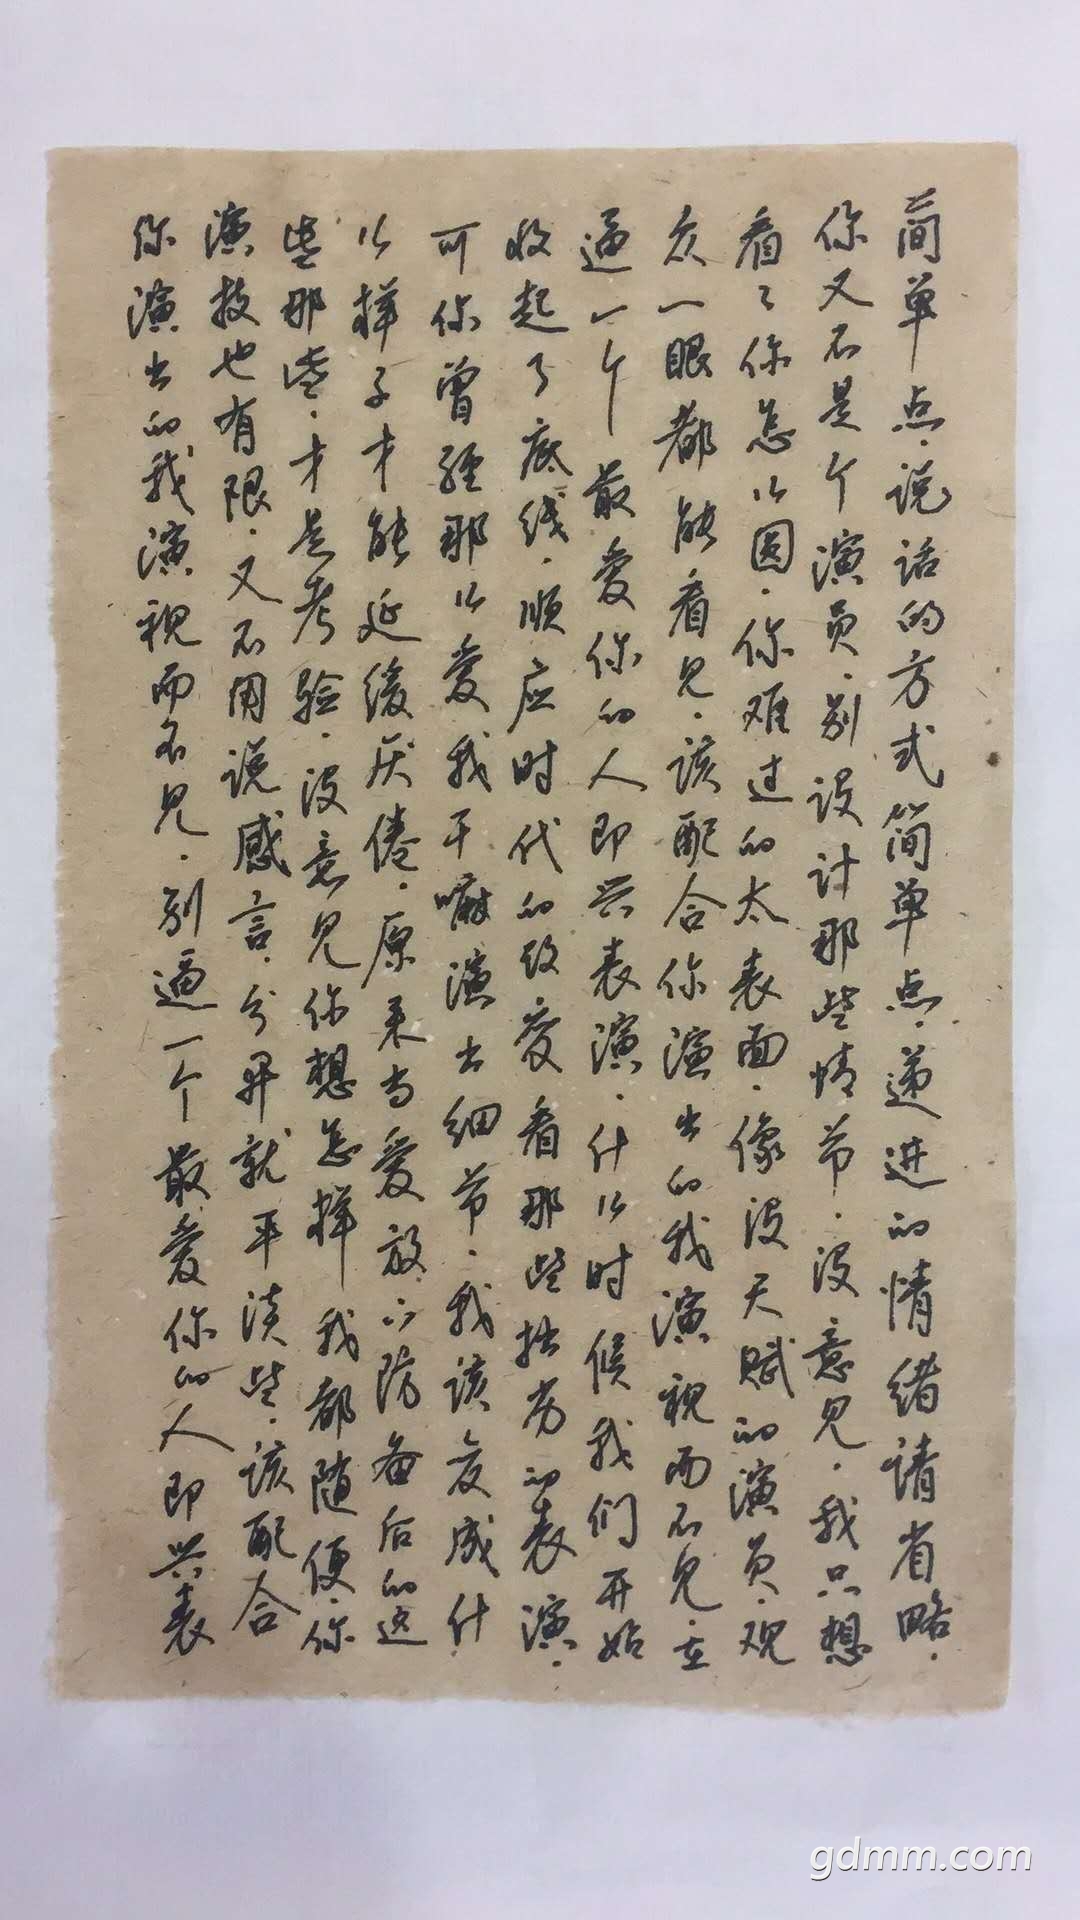 简单点.说话的方式简单点.递进的情绪请省略.
你又不是个演员.别设计那些情节.没意见.我只想
看々你怎么圆.你难过的太表面.像没天赋的演员.观
众一眼都能看见.该配合你演出的我演视而不见.在
逼一个最爱你的人即兴表演.什么时候我们开始
收起了底线.顺应时代的改变看那些拙劣的表演.
可你曾经那么爱我干嘛演出细节.我该变成什
么样子才能延缓厌倦.原来当爱放下防备后的这
些那些.才是考验.没意见你想怎样我都随便.你
演技也有限.又不用说感言.分开就平淡些.该配合
你演出的我演视而不见.别逼一个最爱你的人即兴表
gdmm.com